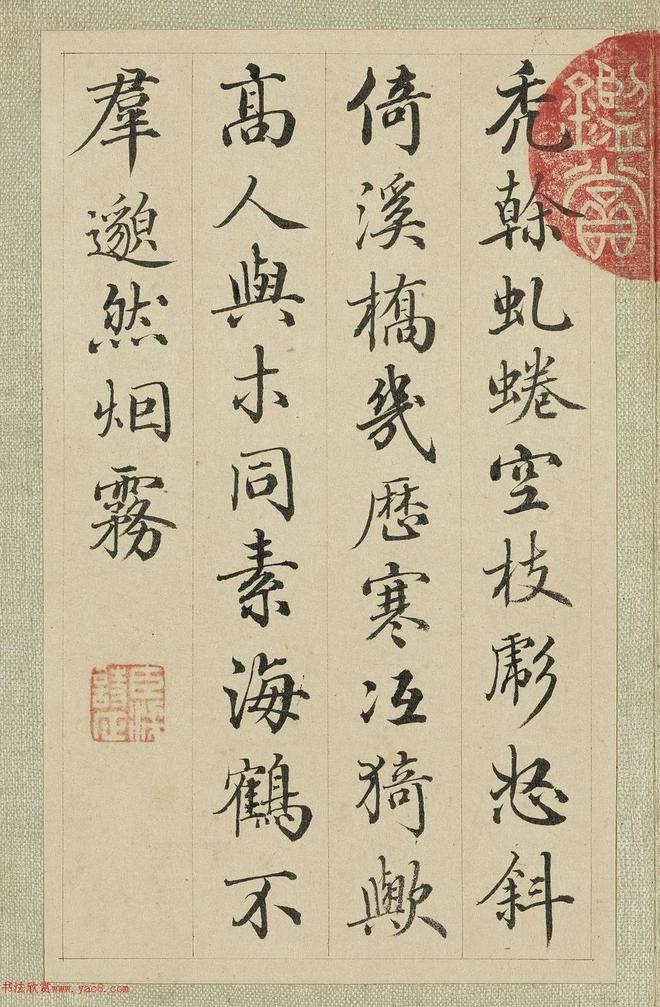 秃榦虬蜷空枝彪怒斜
倚溪橋幾歷寒冱猗歟
高人與木同素海鶴不
羣邈然烟霧
鑑賞
书法欣赏www.yac8.com